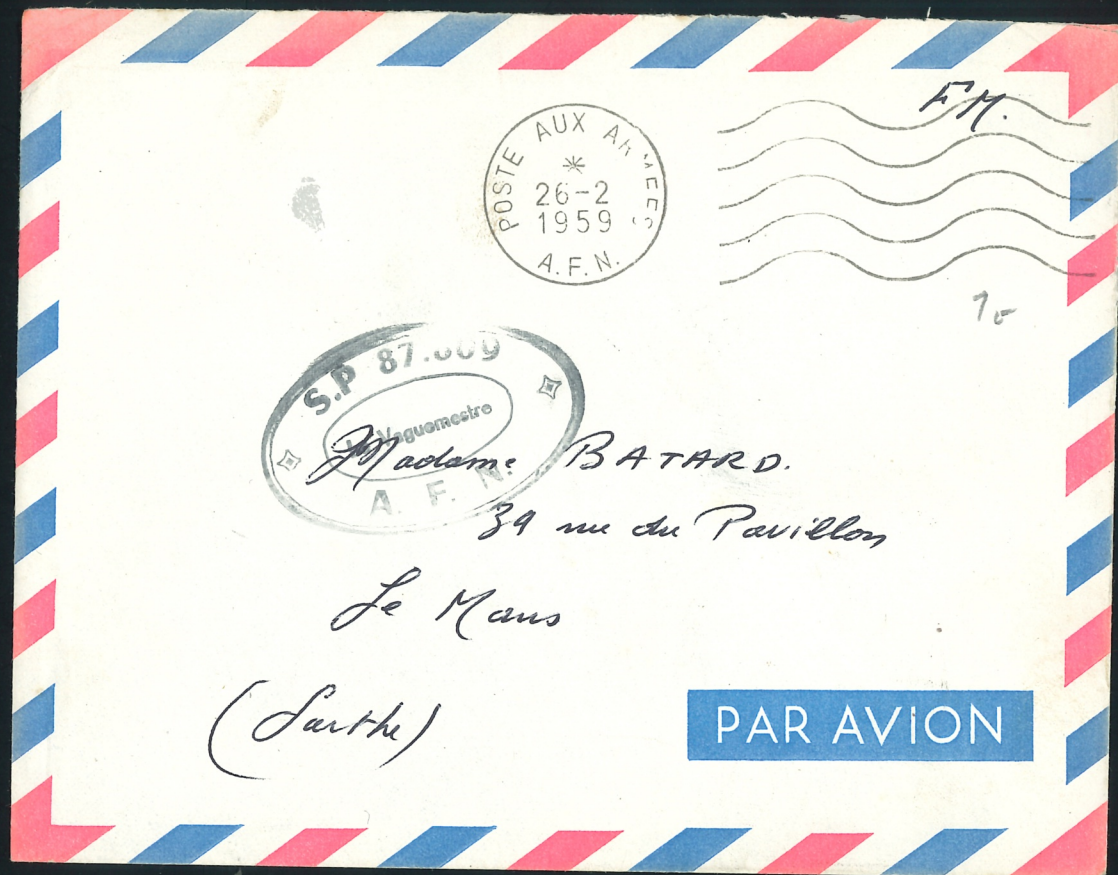 F.M.
POSTE AUX ARMEES
26-2
1959
A.F.N.
S.P 87.
Le Vaguemestre
A. F. N.
Madame BATARD.
39 rue du Pavillon
Le Mans
(Sarthe)
PAR AVION